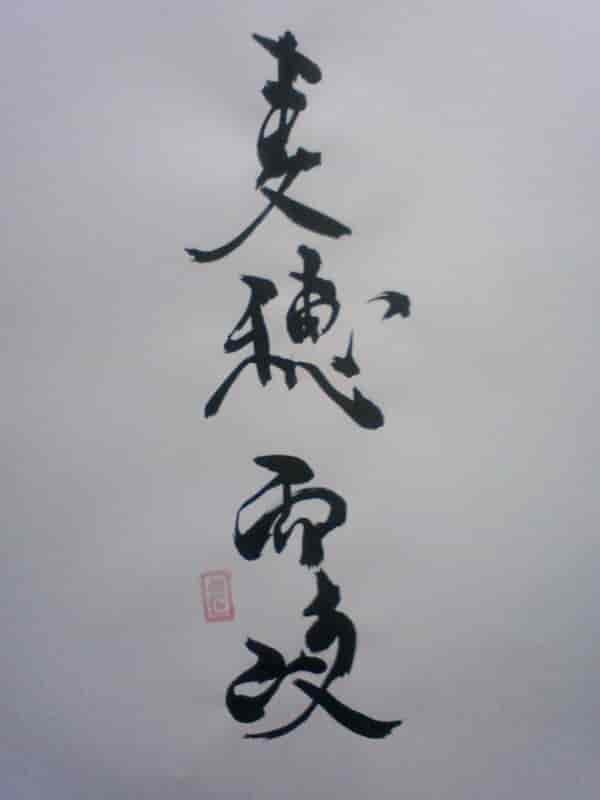 麦穂両岐